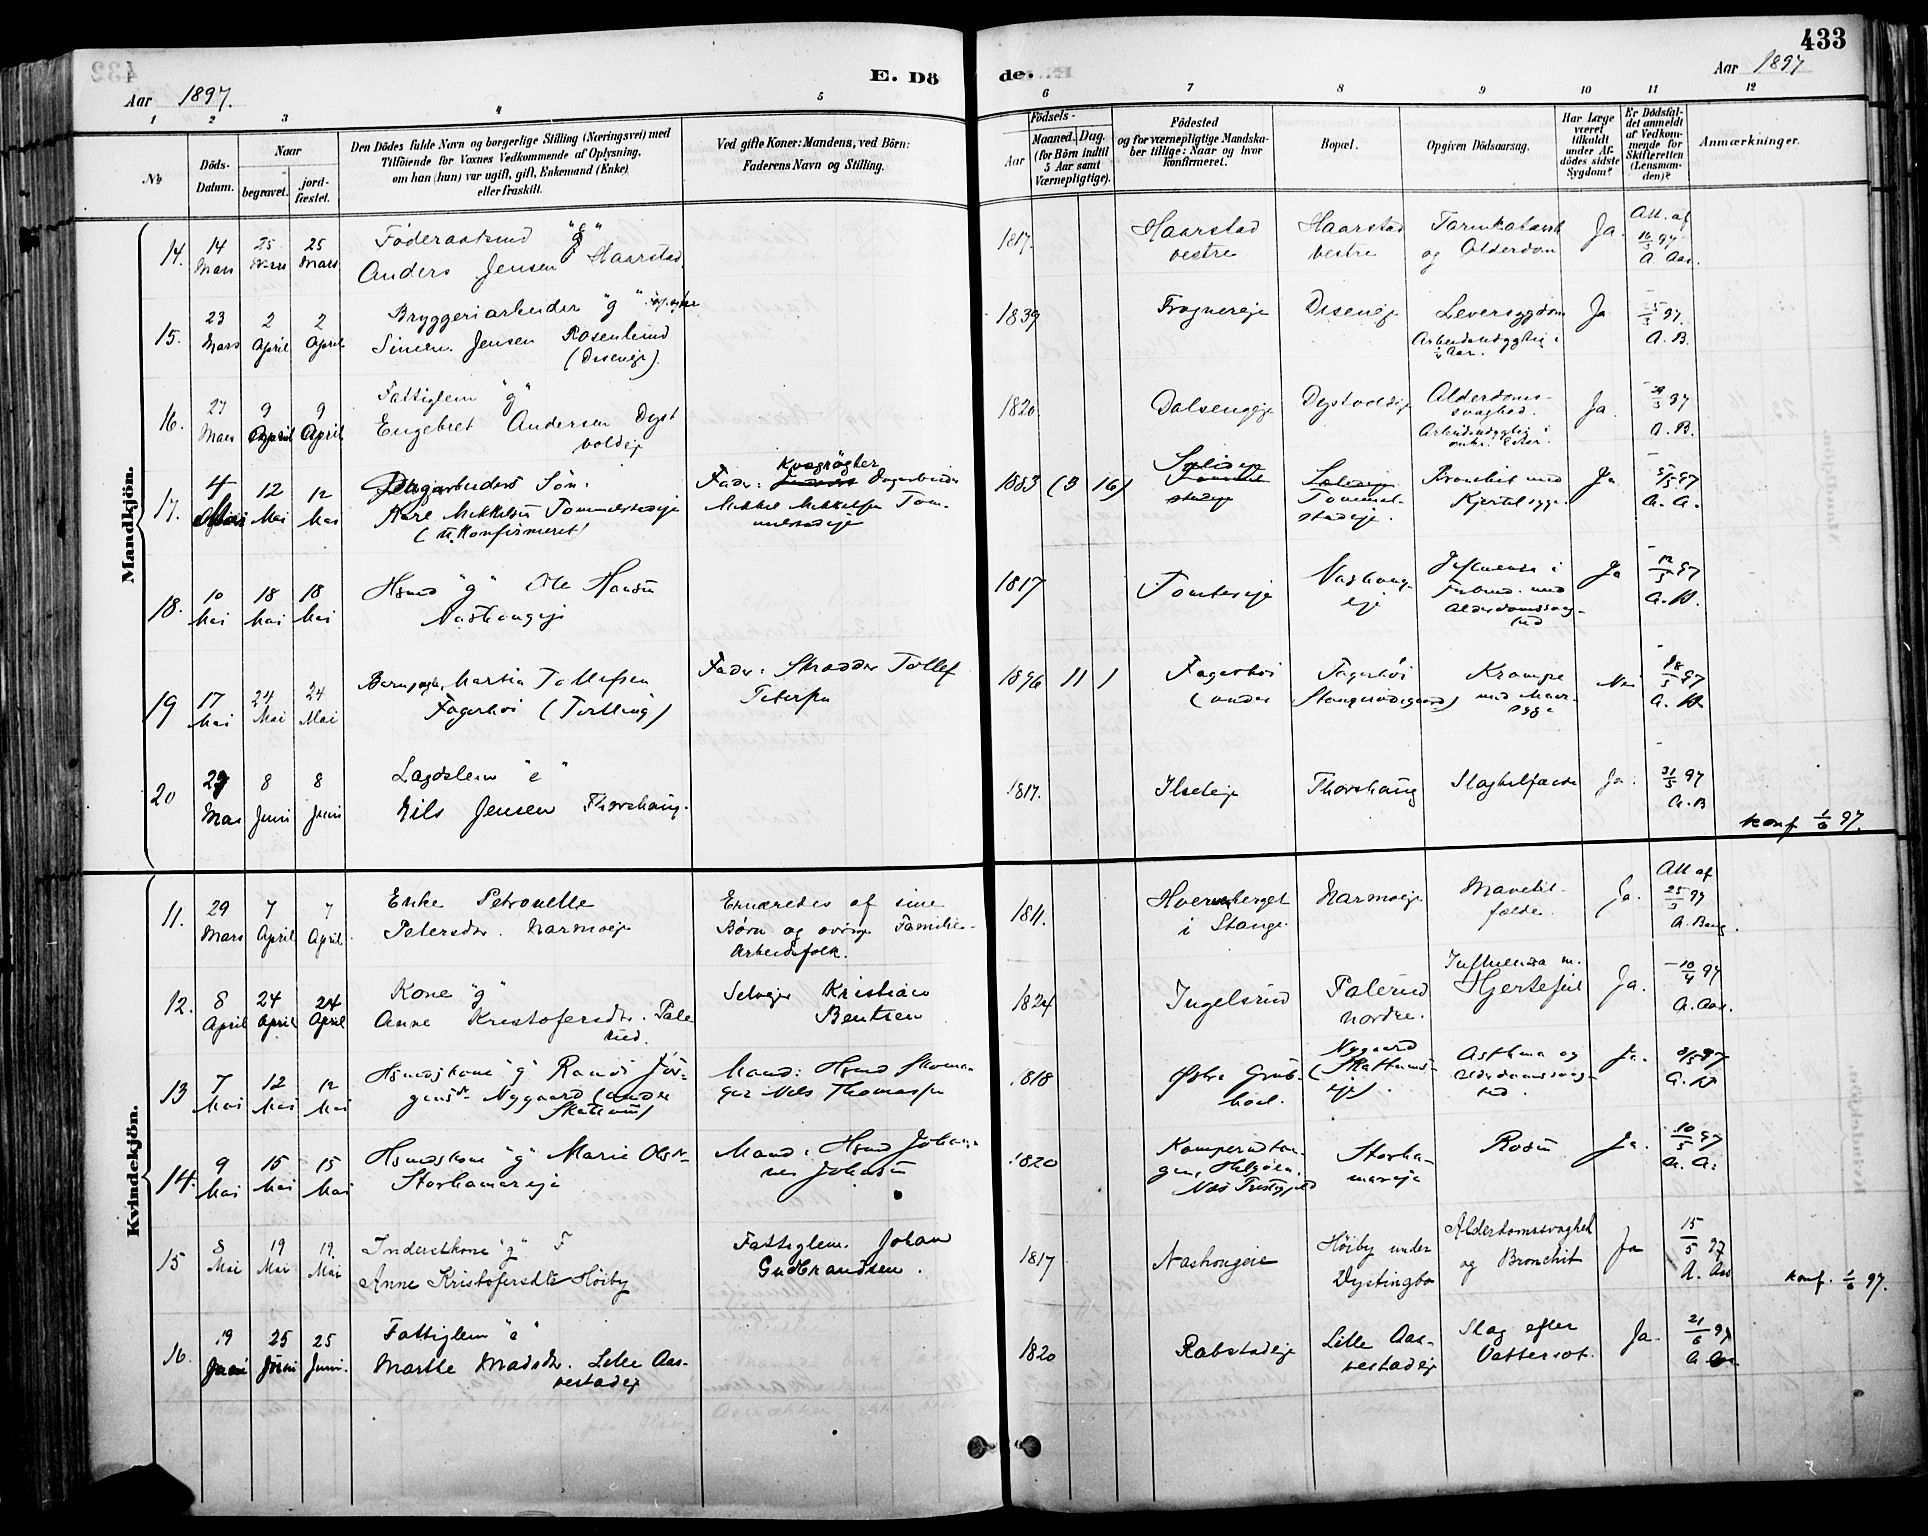 433
E. Döde.
Aar 1897.
Aar 1897
1 2 3 4 5 6 7 8 9 10 11 12
No
Döds-Datum.
Naar
begravet.
jordfæstet.
Den Dödes fulde Navn og borgerlige Stilling (Næringsvei) med
Tilföiende for Voxnes Vedkommende af Oplysning,
om han (hun) var ugift, gift, Enkemand (Enke)
eller fraskilt.
Ved gifte Koner: Mandens, ved Börn:
Faderens Navn og Stilling.
Födsels-
Aar
Maaned. Dag.
(for Börn indtil
5 Aar samt
Værnepligtige).
Födested
og for værnepligtige Mandskaber tillige: Naar og hvor
Konfirmeret.
Bopæl.
Opgiven Dödsaarsag.
Har Læge
været
tilkaldt
under Afdödes sidste
Sygdom?
Er Dödsfaldet anmeldt
af Vedkommende for
Skifteretten
(Lensmanden)?
Anmærkninger.
Mandkjön.
14. 14 Mars 25 Mars 25 Mars
Föderaadsmd "g"
Anders Jensen Haarstad
1817. Haarstad vestre Haarstad vestre Tarmkatarrh og Alderdom Ja. Att. af 16/3 97 A. Aas.
15. 23 Mars 2 April 2 April
Bryggeriarbeider "g"
Simen Jensen Rosenlund
(Diseneje)
1839 Frognereje Diseneje Leversygdom Ja 97. A. B.
16. 27 Mars 9 April 9 April
Fattiglem "g"
Engebret Andersen Dystvoldeje
1820 Dalsengeje Dystvoldeje Alderdomssvaghed. Ja. 97 A. B.
17. 4 Mai 12 Mai 12 Mai
Dagarbeiders Sön
Karl Mikkelsen Tommelstadeje
(u. Konfirmeret)
Fader: Kvægrögter Dagarbeider
Mikkel Mikkelsen Tommelstadeje
1883 (3 16) Tommelstadeje. Bronchit med Kjertelsyge Ja 5/5 97 A. A.
18. 10 Mai 18 Mai 18 Mai
Hsmd "g" Ole Hansen
Nashaugeje
1817 Tomtereje Nashaugeje Influensa i Forbind. med Alderdomssvaghed Ja 12/5 97 A. B.
19 17 Mai 24 Mai 24 Mai
Martin Tollefsen
Fagerhöi (Tvilling)
Fader: Skrædder Tollef
Petersen
1896 11 1 Fagerhöi (under Fagerhöi Stangesödegaard) Krampe med Nei 18/5 97 A. B.
20 29 Mai 8 Juni 8 Juni
Lægdslem "e"
Nils Jensen Thorshaug.
1817. Ilseleje Thorshaug Slagtilfælde Ja. 31/5 97 A. B
konf 1/6 97.
Kvindekjön.
11. 29 Mars 7 April 7 April
Enke Petronelle
Petersdtr. Narmoeje
Ernæredes af sine
Börn og övrige Familie.
Arbeidsfolk.
1811. Hvervenberget i Stange Narmoeje Mavetilfælde. Ja. Att af 25/3 97 A. Bang.
12. 8 April 24 April 24 April
Kone "g"
Anne Kristofersdtr. Palerud.
Selveier Kristian
Bentsen
1824 Ingelsrud Palerud nordre. Influensa m. Hjertefeil Ja. 10/4 97 A. Aas.
13 7 Mai 12 Mai 12 Mai
Hsmdskone "g" Randi Jörgensdtr Nygaard (under
Skattum)
Mand: Hsmd Skomager Nils Thomassen
1818 Östre Grubhoel. Nygaard (Skattumseje). Asthma og Alderdomssvaghed. Ja. 8/5 97 A. B
14. 9 Mai 15 Mai 15 Mai
Hsmdskone "g" Marie Olsdtr
Storhamareje
Mand: Hsmd Johannes Johnsen
1820 Helgöen, Næs Prestegjeld Storhamareje Rosen Ja. 10/5 97 A. A.
15 8 Mai 19 Mai 19. Mai
Inderstkone "g"
Anne Kristofersdtr Höiby
Fattiglem. Johan
Gudbrandsen.
1817 Nashaugeie Höiby under Dystingbo Alderdomssvaghed og Bronchit Ja 15/5 97 A. Aas
konf. 1/6 97.
16. 19 Juni 25 Juni 25 Juni.
Fattiglem "e"
Marthe Madsdtr. Lille Aasvestadeje
1820 Rabstadeje Lille Aasvestadeje Slag efter Vattersot. Ja. 21/6 97 A. Aas